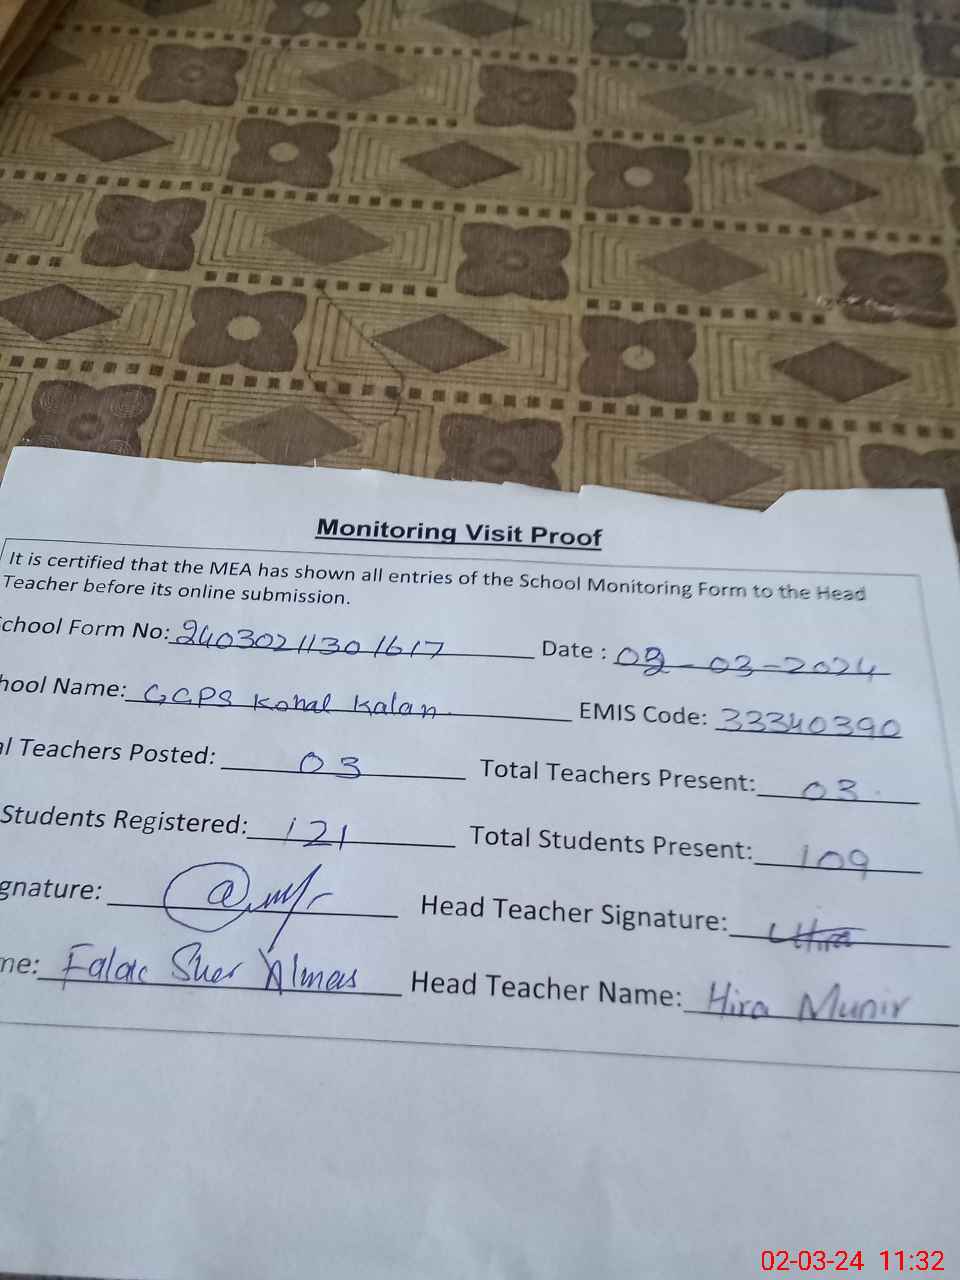 Monitoring Visit Proof
It is certified that the MEA has shown all entries of the School Monitoring Form to the Head
Teacher before its online submission.
chool Form No: 24030211301617 Date : 02-03-2024
hool Name: GGPS Kohal Kalan. EMIS Code: 33340390
al Teachers Posted: 03 Total Teachers Present: 03
Students Registered: 121 Total Students Present: 109
gnature: Head Teacher Signature: Hira
me: Falak Sher Almas Head Teacher Name: Hira Munir
02-03-24 11:32